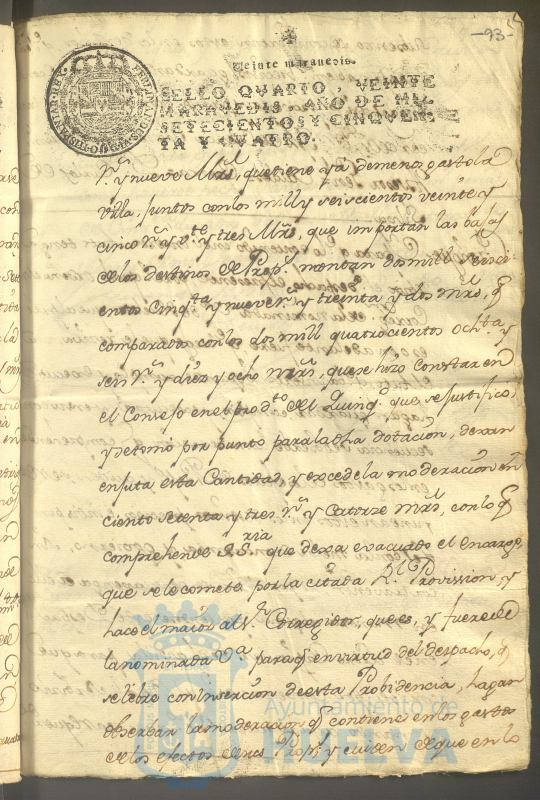 -93-
Veinte maravedis.
SELLO QVARTO, VEINTE
MARAVEDIS, AÑO DE MIL
SETECIENTOS Y CINQVEN-
TA Y QVATRO.
rs. y nueve Mrs, que tiene ya de menos gasto la
Villa, juntos con los mill y seiscientos veinte y
cinco rs. y te. y tres Mrs, que importan las bajas
de los destinos de Props. montan dos mil seisci
entos Cinqta y nueve rs. y treinta y dos mrs, q
comparados con los dos mill quatrocientos ochta y
seis rs. y diez y ocho mrs, que se hizo constar en
el Consejo en el prodto del Quinqo. que se justificó,
y se tomó por punto para la dha dotacion, dexan
en esta Cantidad, y excede la moderacion en
ciento setenta y tres rs. y catorze mrs, con lo q
comprehende S. Sria que dexa evacuado el encargo,
que se le comete por la citada Rl. Provission, y
hace el maior al Sr. Corregidor, que es, y fuere de
la nominada Va para q en virtud del despacho, q
se libre con insercion de esta Probidencia, hagan
observar la moderacion q contiene en los gastos
de los efectos de sus Props. y cuiden de que en lo
Ayuntamiento de
HUELVA